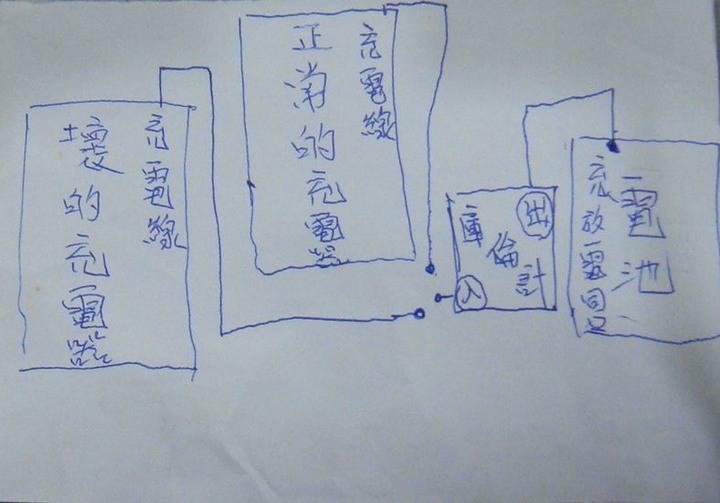 壞的充電器
充電線
正常的充電器
充電線
庫倫計
出
入
電池
充放電同口